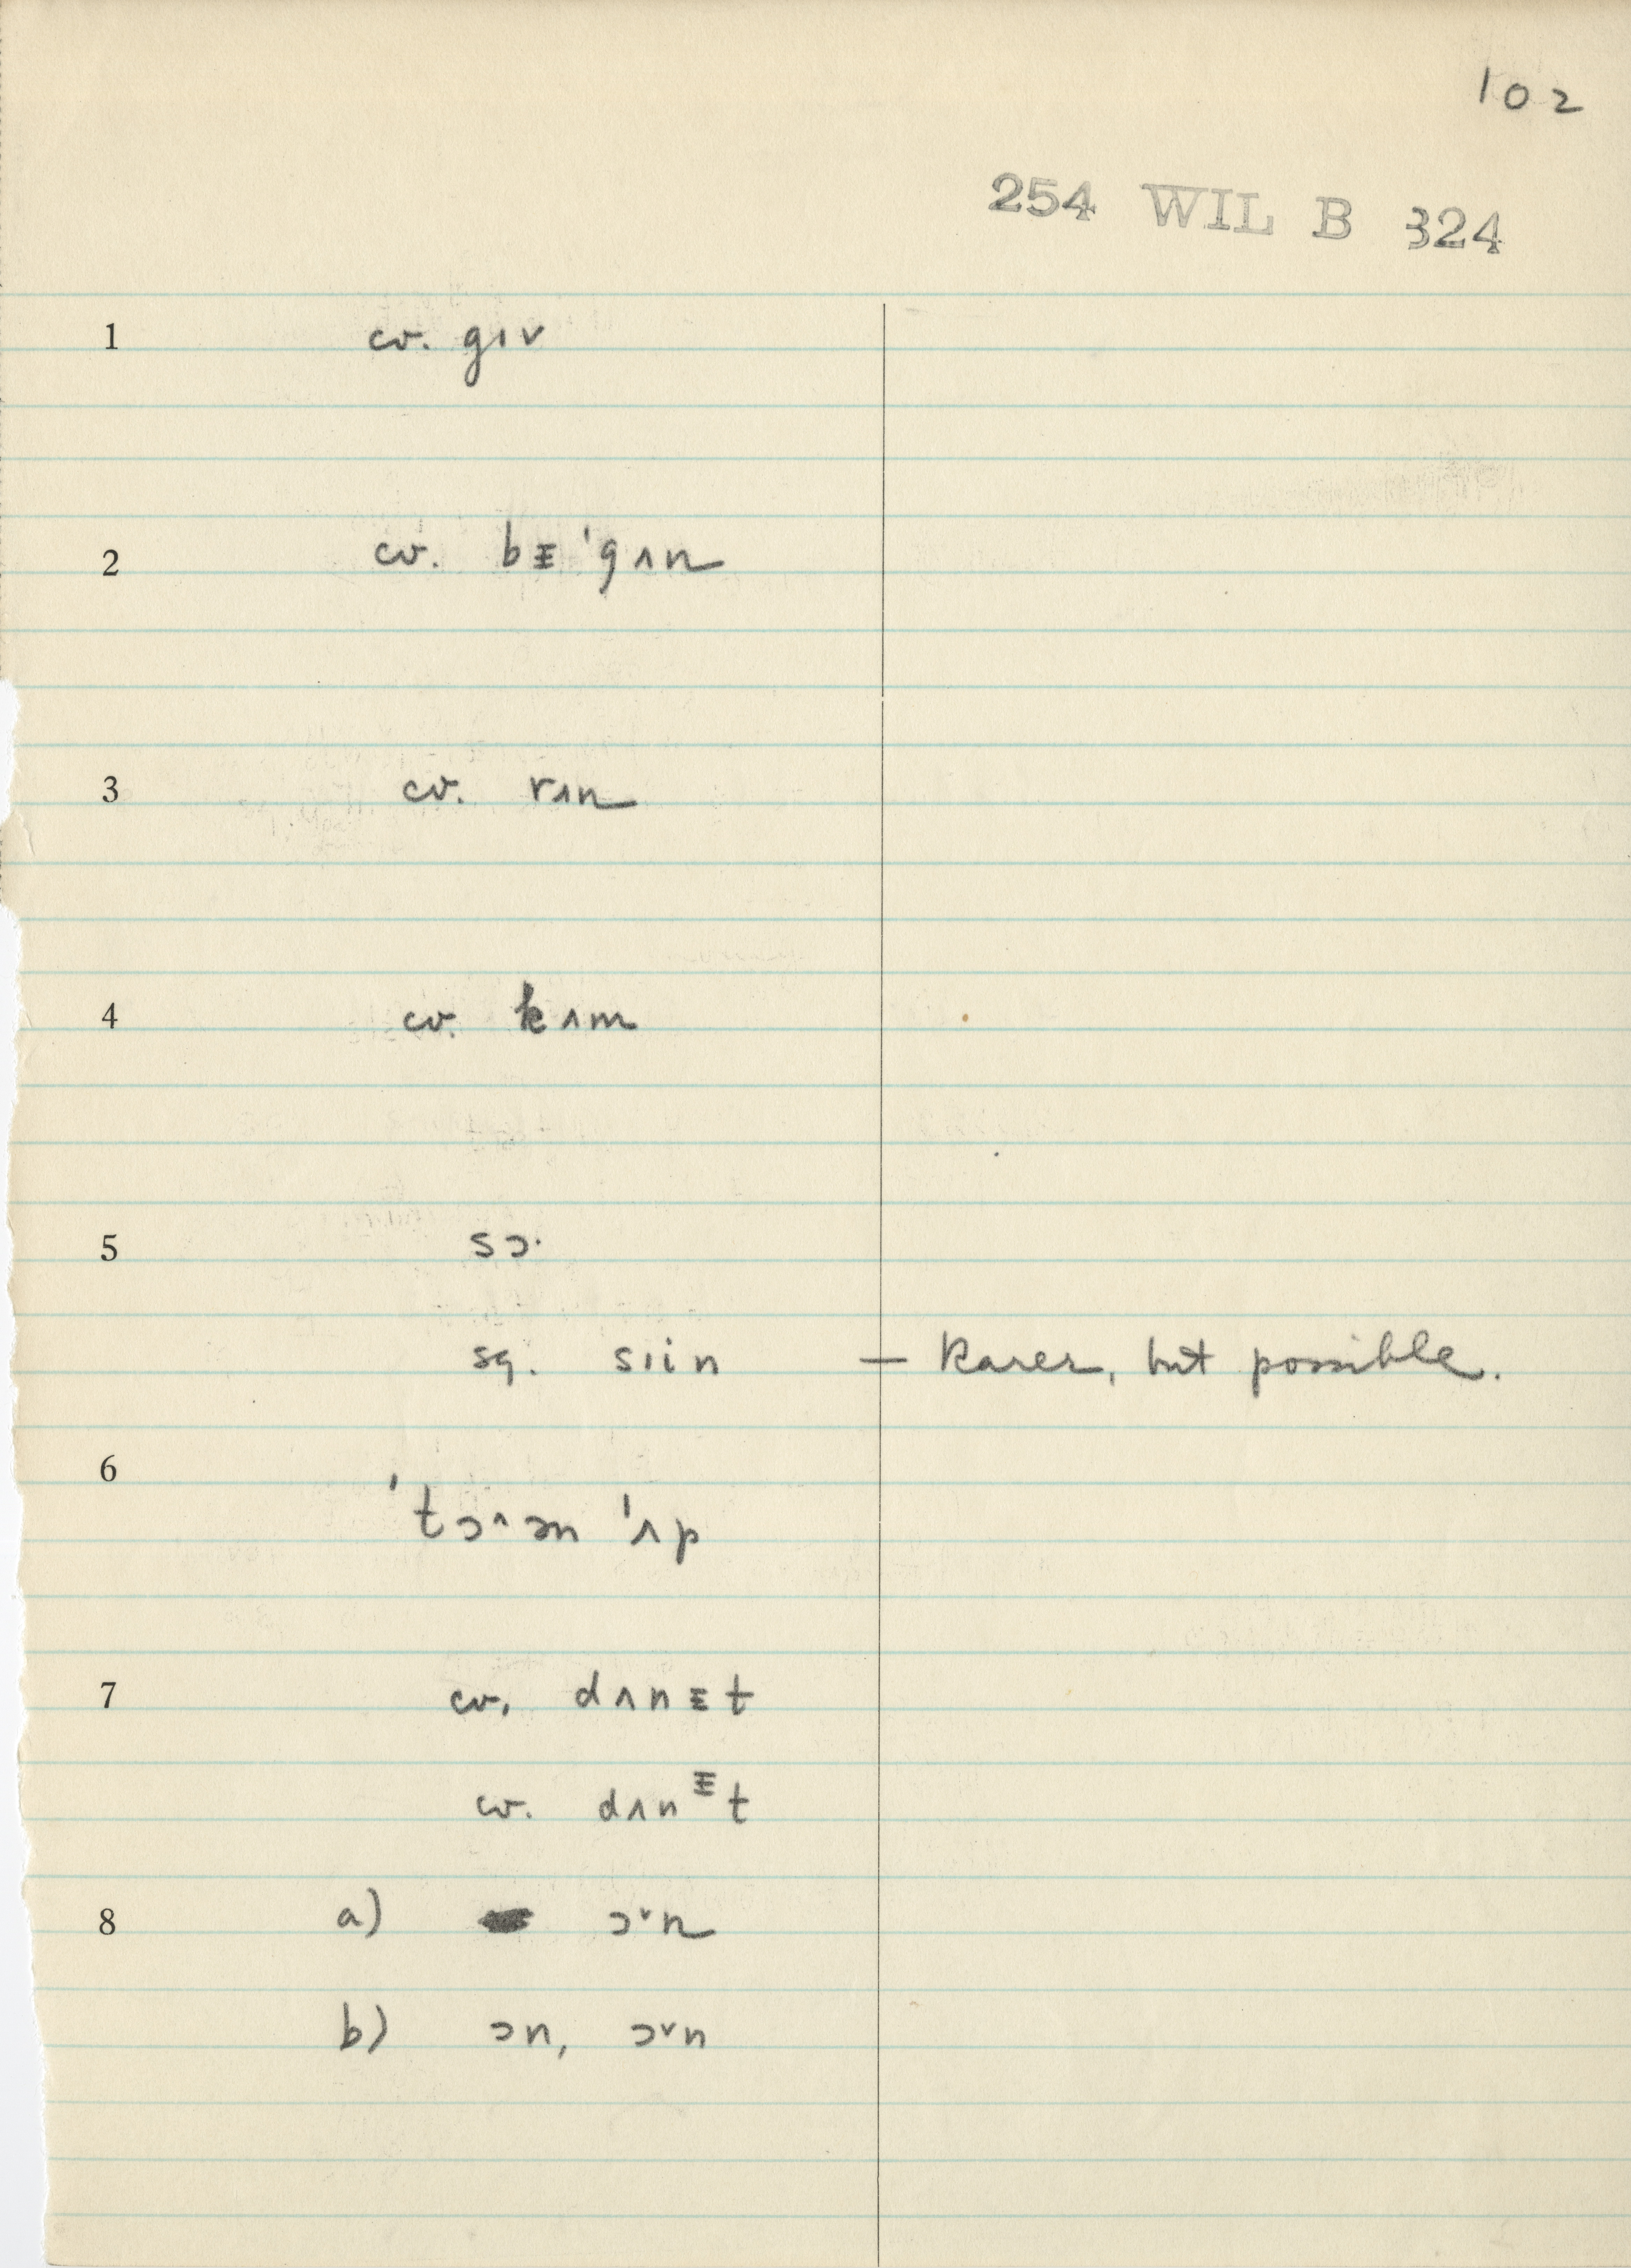 102
254 WIL B 324
1 cv. gɪv
2 cv. bɪ̵ 'gʌn
3 cv. rʌn
4 cv. kʌm
5 sɔ·
sg. sɪin — Rarer, but possible.
6 'tɔ^əm 'ʌp
7 cv. dʌnɪ̵t
cv. dʌnᵻt
8 a) ɔ˅n
b) ɔn, ɔ˅n